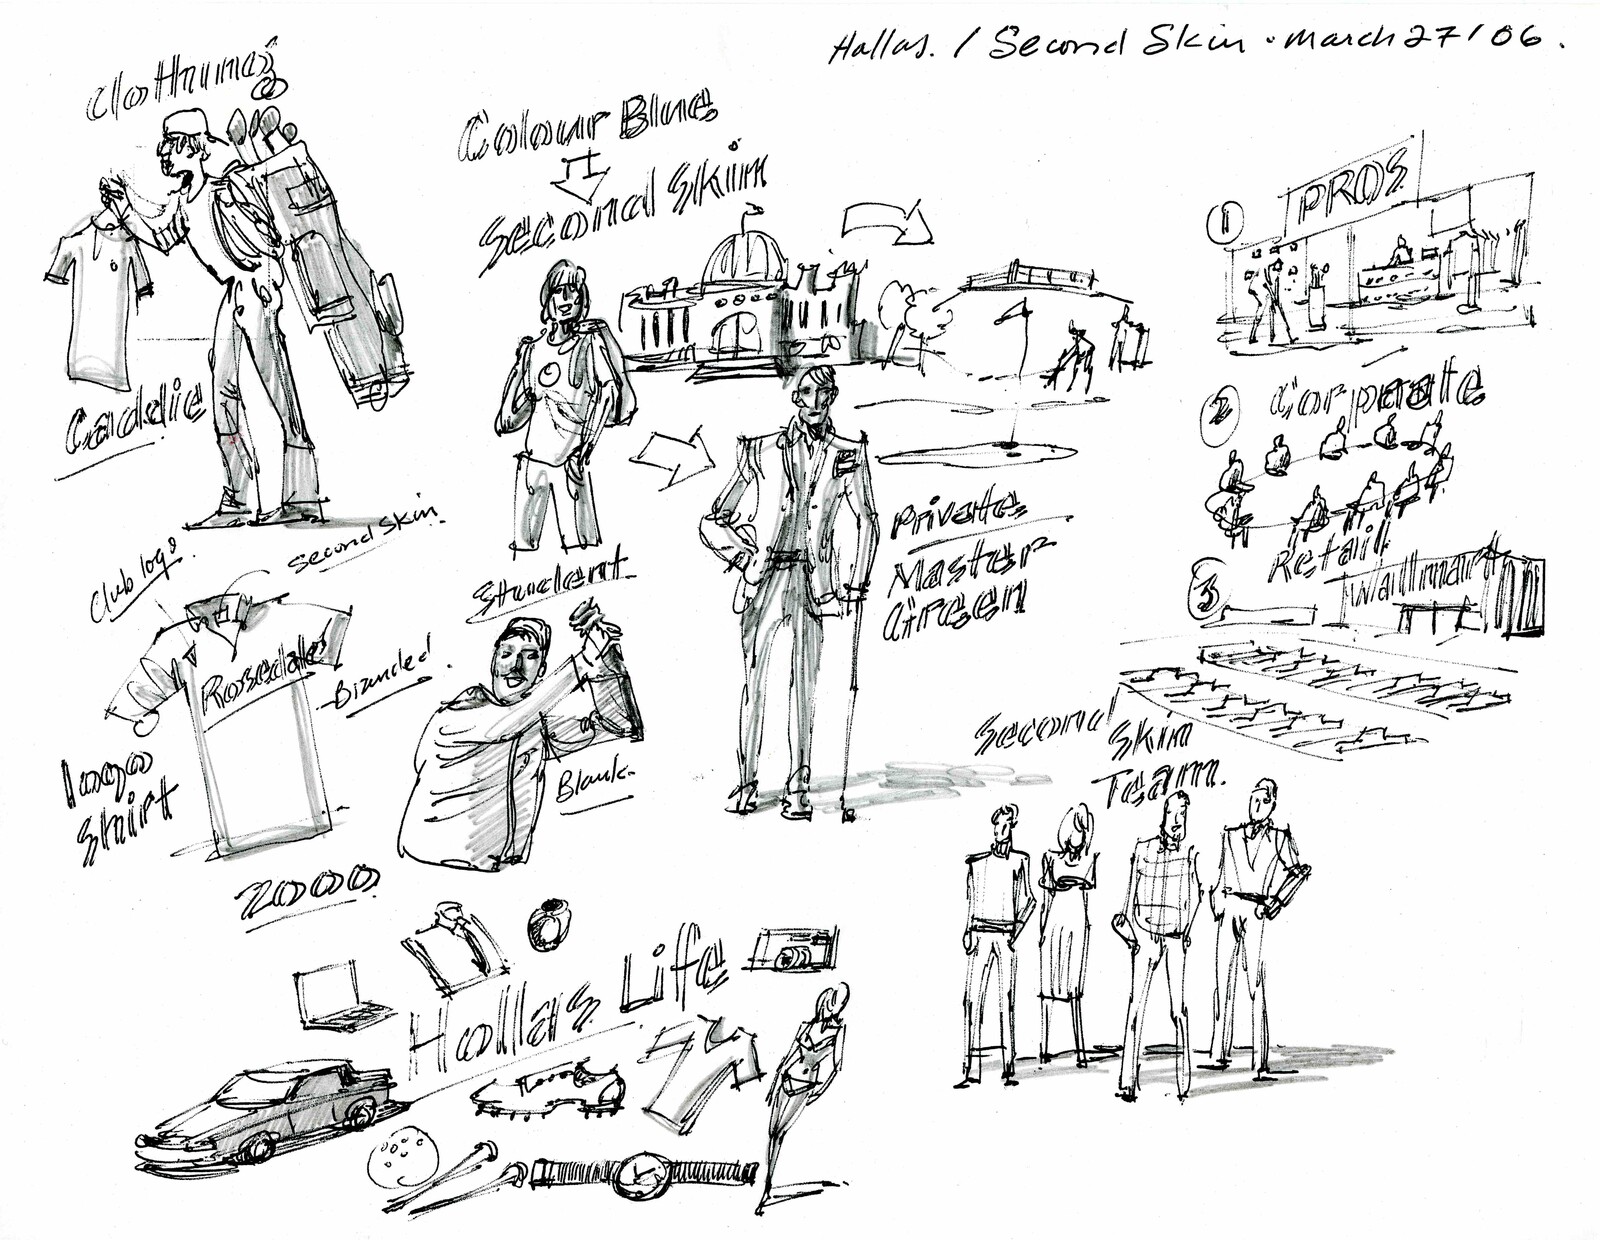 Hallas. / Second Skin . March 27/06.
Clothing
Colour Blue
Second Skin
Caddie
Student
Private
Master
Green
1
PROS
2 Corporate
Retail
3
Wallmart
Club logo
Second Skin.
Rosedale
Branded.
Logo
Shirt
2000
Blank.
Second
Skin
Team.
Hallas Life